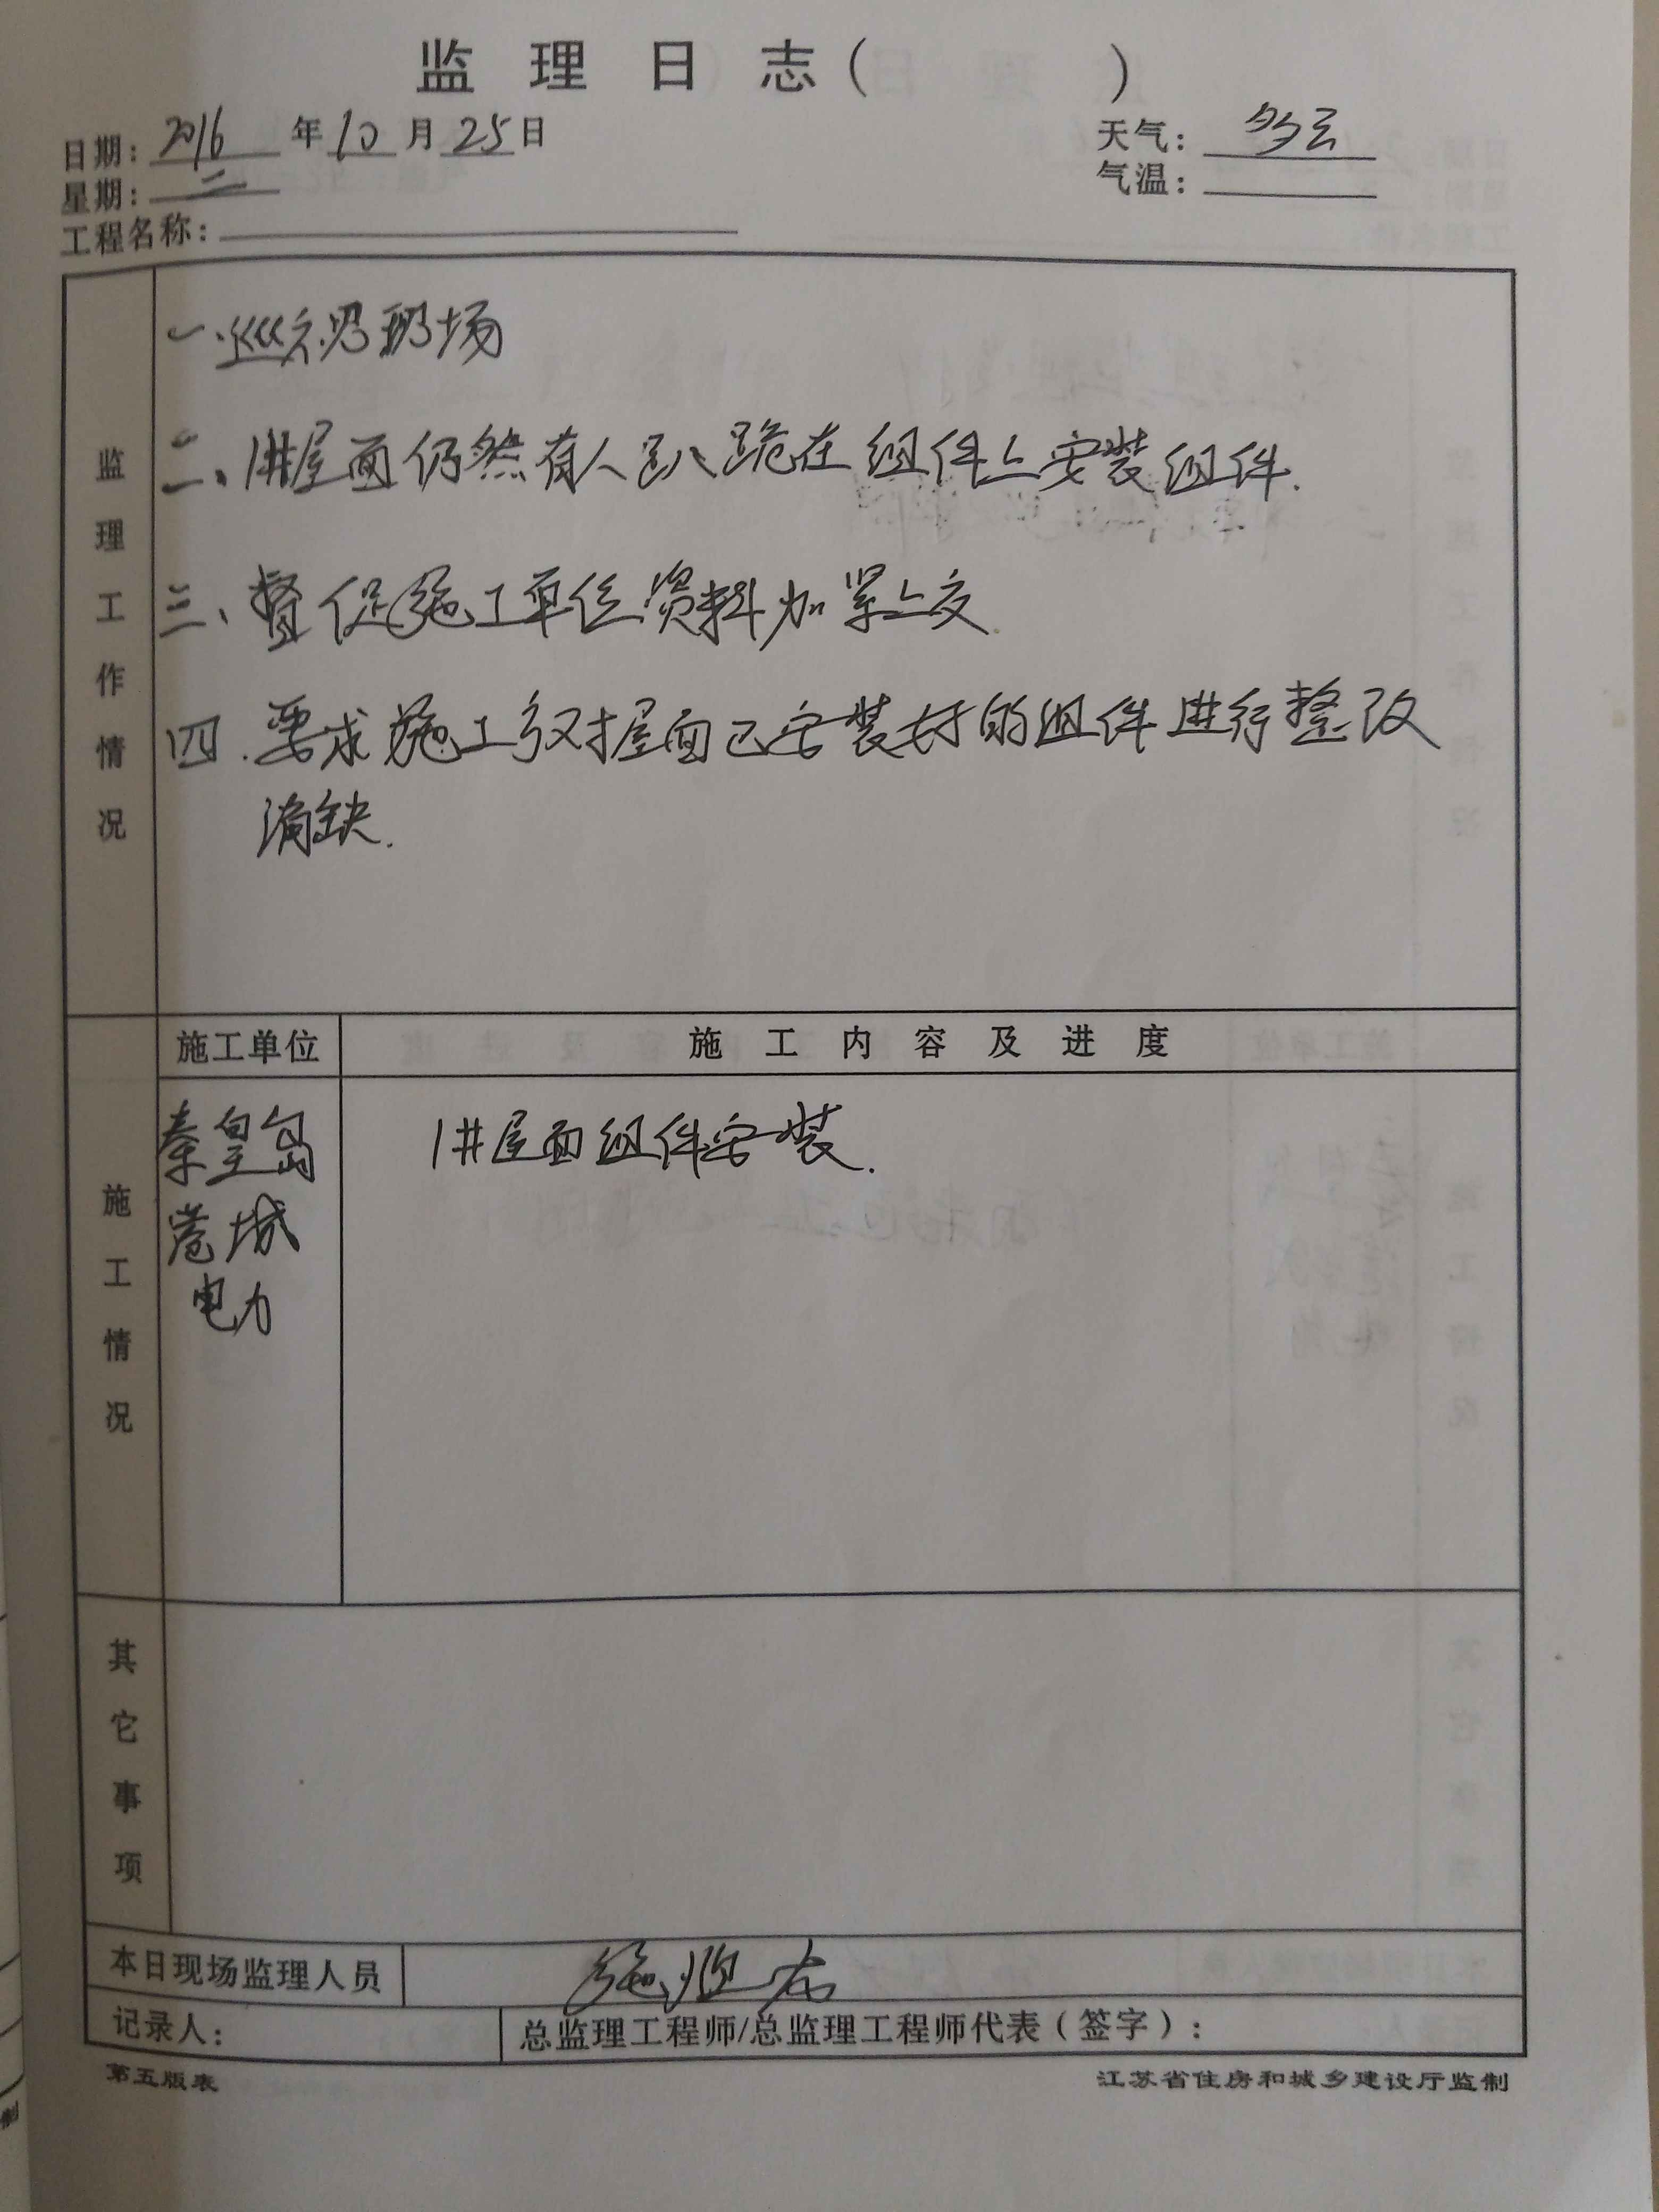 监理日志(  )
日期：2016年10月25日
天气：多云
星期：二
气温：
工程名称：
监理工作情况
一.巡视现场
二、1#屋面仍然有人趴跪在组件上安装组件.
三、督促施工单位资料加紧上交.
四.要求施工方对屋面已安装好的组件进行整改
消缺.
施工情况
施工单位
施工内容及进度
秦皇岛
港城
电力
1#屋面组件安装.
其它事项
本日现场监理人员
施
记录人：
总监理工程师/总监理工程师代表（签字）：
第五版表
江苏省住房和城乡建设厅监制